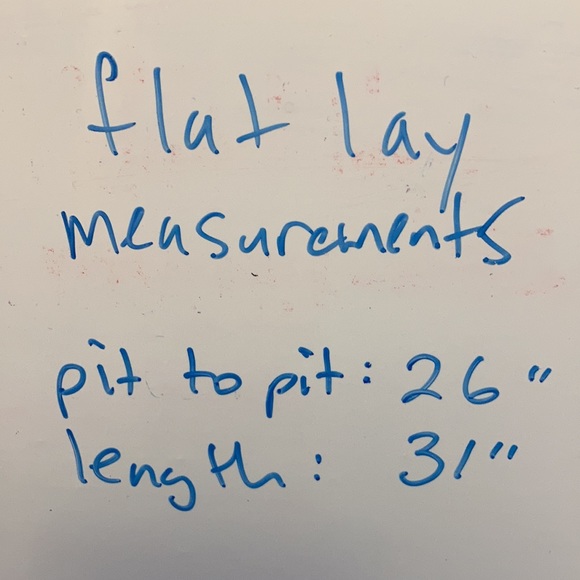 flat lay
measurements
pit to pit: 26"
length: 31"